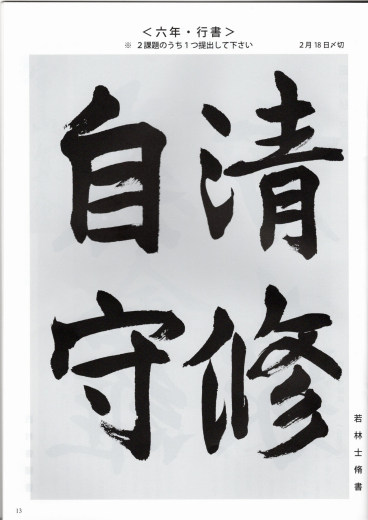 ＜六年・行書＞
※ ２課題のうち１つ提出して下さい
２月18日〆切
清修
自守
若林士脩書
13